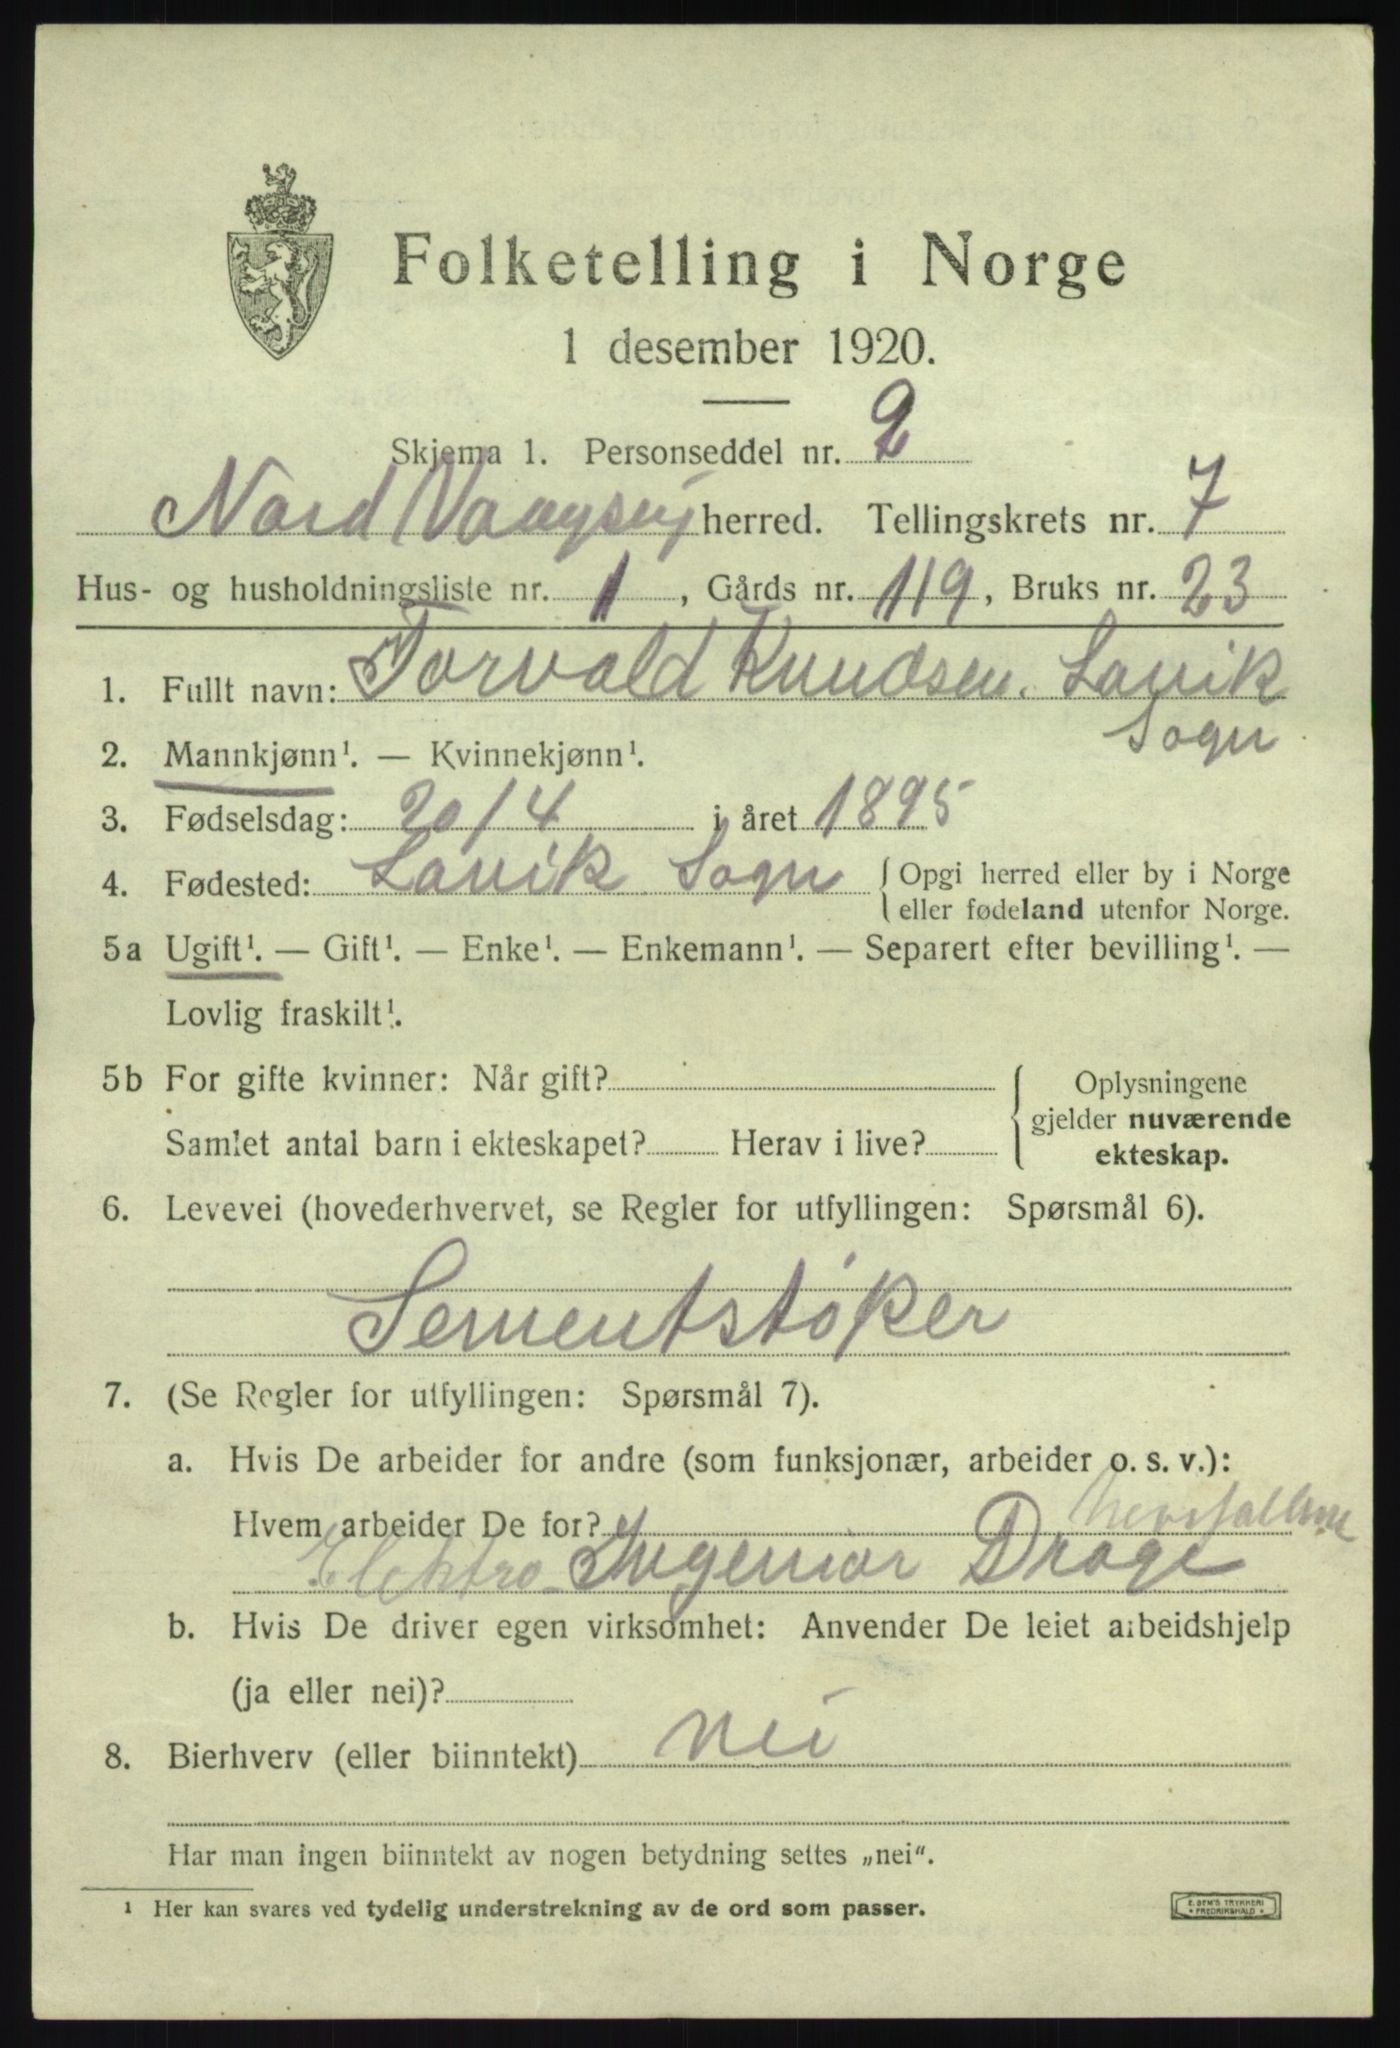 Folketelling i Norge
1 desember 1920.
Skjema 1. Personseddel nr. 2
Nord Vaagsøy herred. Tellingskrets nr. 7
Hus- og husholdningsliste nr. 1, Gårds nr. 119, Bruks nr. 23
1. Fullt navn: Torvald Knudsen. Lavik
Sogn
2. Mannkjønn¹. — Kvinnekjønn¹.
3. Fødselsdag: 20/4 i året 1895
4. Fødested: Lavik Sogn { Opgi herred eller by i Norge
eller fødeland utenfor Norge.
5a Ugift¹. — Gift¹. — Enke¹. — Enkemann¹. — Separert efter bevilling¹. —
Lovlig fraskilt¹.
5b For gifte kvinner: Når gift? { Oplysningene
gjelder nuværende
Samlet antal barn i ekteskapet? Herav i live?
ekteskap.
6. Levevei (hovederhvervet, se Regler for utfyllingen: Spørsmål 6).
Sementstøker
7. (Se Regler for utfyllingen: Spørsmål 7).
a. Hvis De arbeider for andre (som funksjonær, arbeider o. s. v.):
Hvem arbeider De for?
Elektro Ingeniør Drage
b. Hvis De driver egen virksomhet: Anvender De leiet arbeidshjelp
(ja eller nei)?
8. Bierhverv (eller biinntekt) nei
Har man ingen biinntekt av nogen betydning settes „nei“.
¹ Her kan svares ved tydelig understrekning av de ord som passer.
E. SEM'S TRYKKERI
• FREDRIKSHALD •